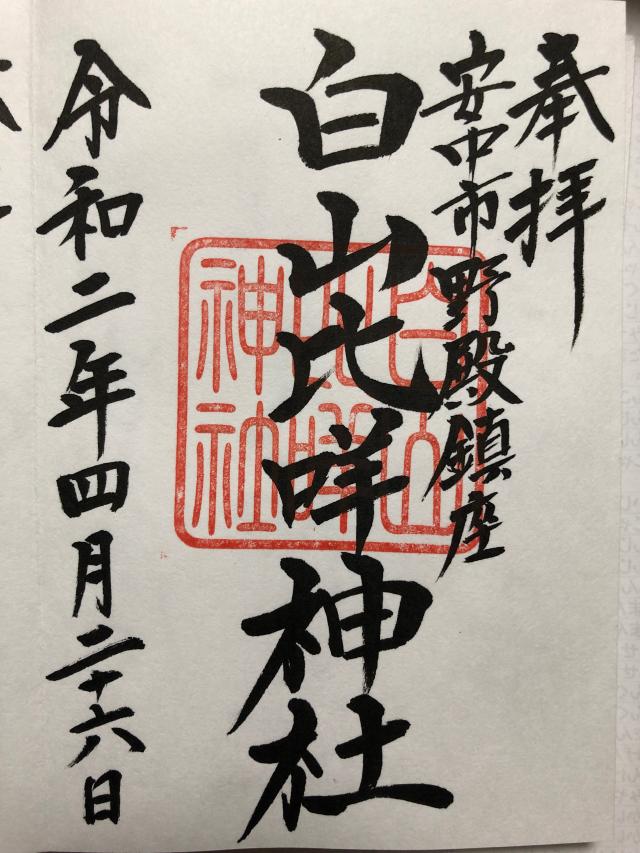 奉拝
安中市野殿鎮座
白山比咩神社
白山比咩神社
令和二年四月二十六日